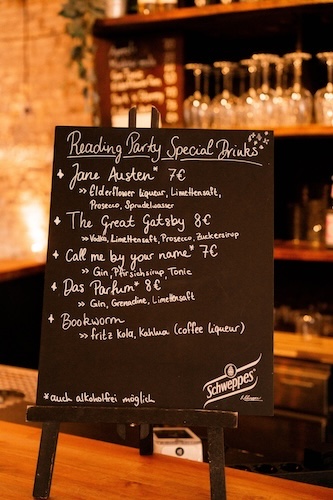 Reading Party Special Drinks
Jane Austen* 7€
>> Elderflower Liqueur, Limettensaft,
Prosecco, Sprudelwasser
The Great Gatsby 8€
>> Vodka, Limettensaft, Prosecco, Zuckersirup
Call me by your name* 7€
>> Gin, Pfirsichsirup, Tonic
Das Parfum* 8€
>> Gin, Grenadine, Limettensaft
Bookworm
>> fritz Kola, Kahlua (coffee liqueur)
Schweppes
*auch alkoholfrei möglich